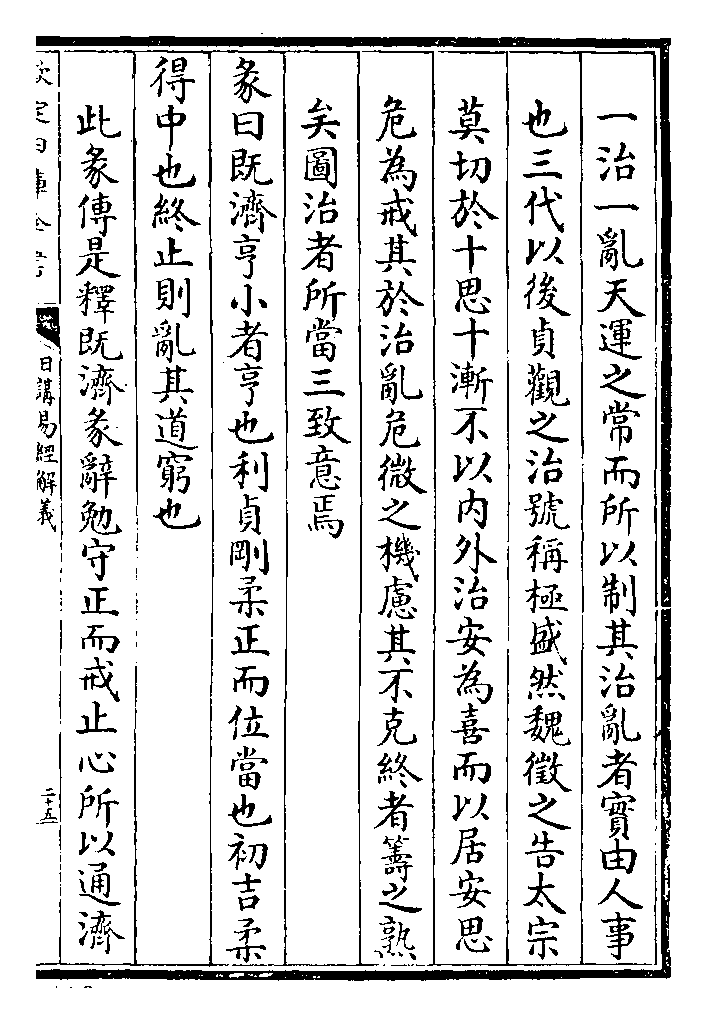 一治一亂天運之常而所以制其治亂者實由人事
也三代以後貞觀之治號稱極盛然魏徵之告太宗
莫切於十思十漸不以内外治安為喜而以居安思
危為戒其於治亂危微之機慮其不克終者籌之熟
矣圖治者所當三致意焉
彖曰既濟亨小者亨也利貞剛柔正而位當也初吉柔
得中也終止則亂其道窮也
此彖傳是釋既濟彖辭勉守正而戒止心所以通濟
欽定四庫全書
日講易經解義
二十五